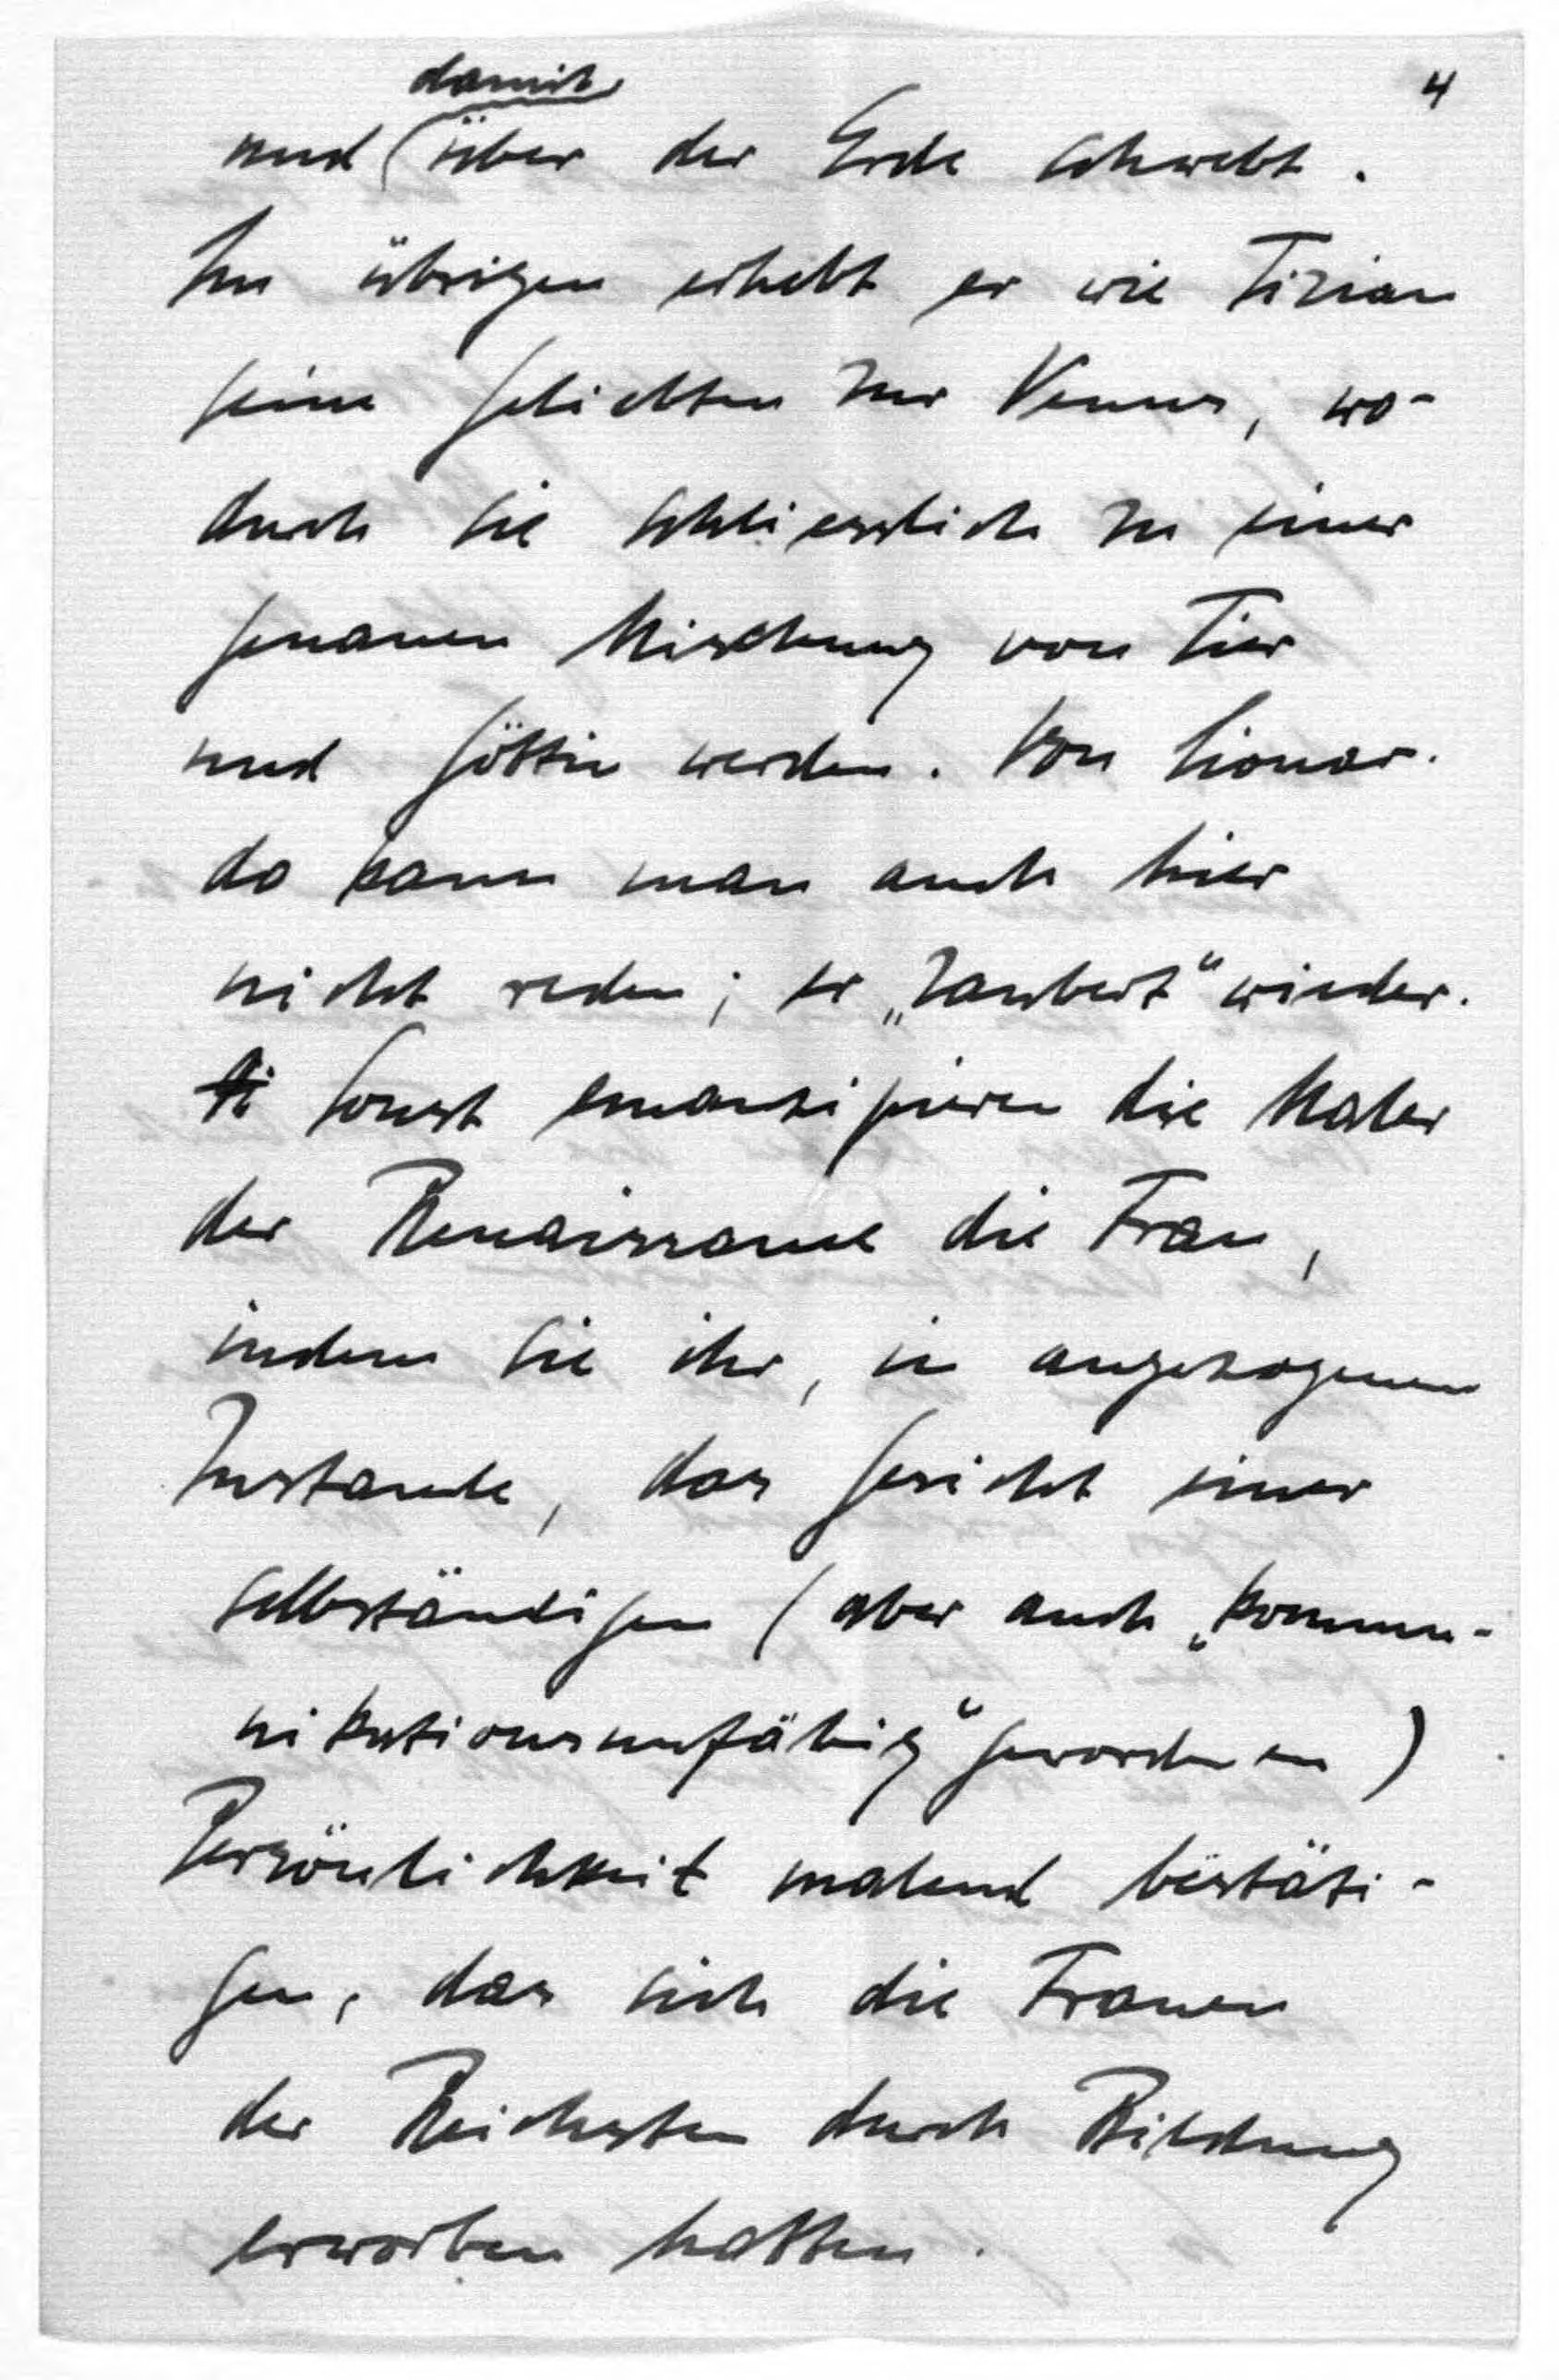 4
damit
und über der Erde schwebt.
Im übrigen erhebt er wie Tizian
seine Geliebten zur Venus, wo-
durch sie schliesslich zu einer
genauen Mischung von Tier
und Göttin werden. Von Lionar-
do kann man auch hier
nicht reden; er „zaubert“ wieder.
Sonst emanzipieren die Maler
der Renaissance die Frau,
indem sie ihr, in angezogenem
Zustande, das Gesicht einer
selbständigen (aber auch „kommu-
nikationsunfähig“ gewordenen)
Persönlichkeit malend bestäti-
gen, das sich die Frauen
der Reichsten durch Bildung
erworben hatten.